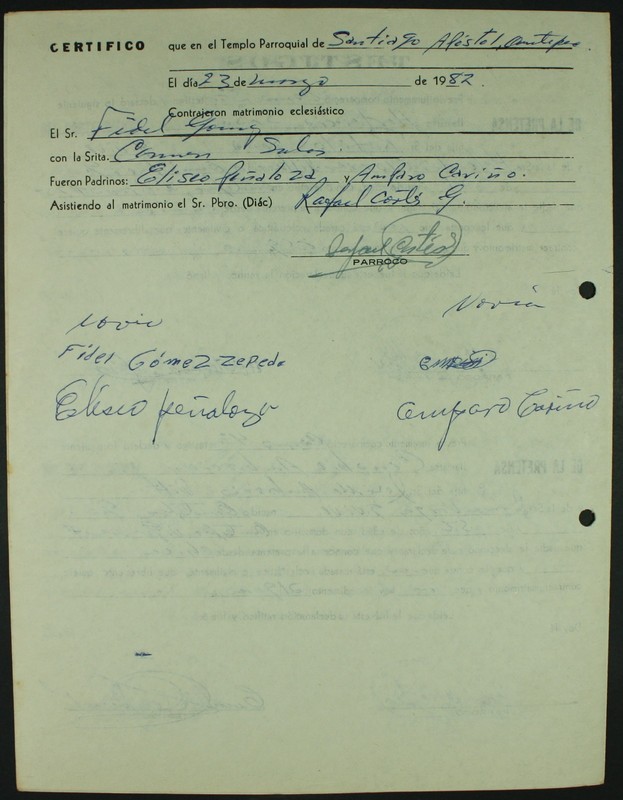 CERTIFICO que en el Templo Parroquial de Santiago Apóstol,
El día 23 de marzo de 1982.
Contrajeron matrimonio eclesiástico
El Sr. Fidel Gomez
con la Srita. Carmen Salas
Fueron Padrinos: Eliseo Peñaloza y Amparo Cariño.
Asistiendo al matrimonio el Sr. Pbro. (Diác) Rafael Cortés G.
Rafael Cortés
PARROCO
Novio Novia
Fidel Gómez-zepeda
Eliseo peñaloza Amparo Cariño